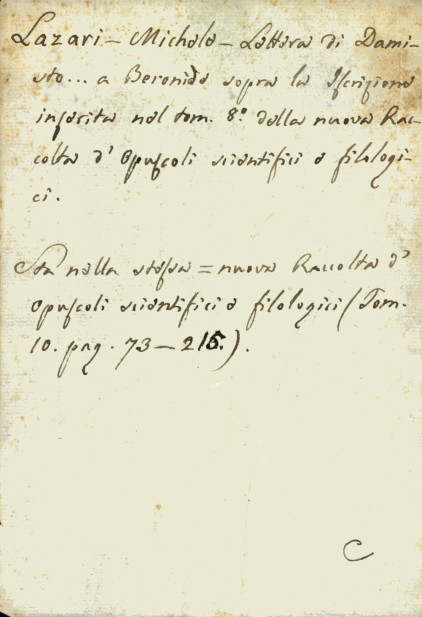 Lazari - Michele - Lettera di Dami-
sto... a Beronide sopra la Iscrizione
inserita nel tom. 8.º della nuova Rac-
colta d' Opuscoli scientifici e filologi-
ci.
Sta nella stessa = nuova Raccolta d'
Opuscoli scientifici e filologici (Tom.
10. pag. 73 - 215.).
C